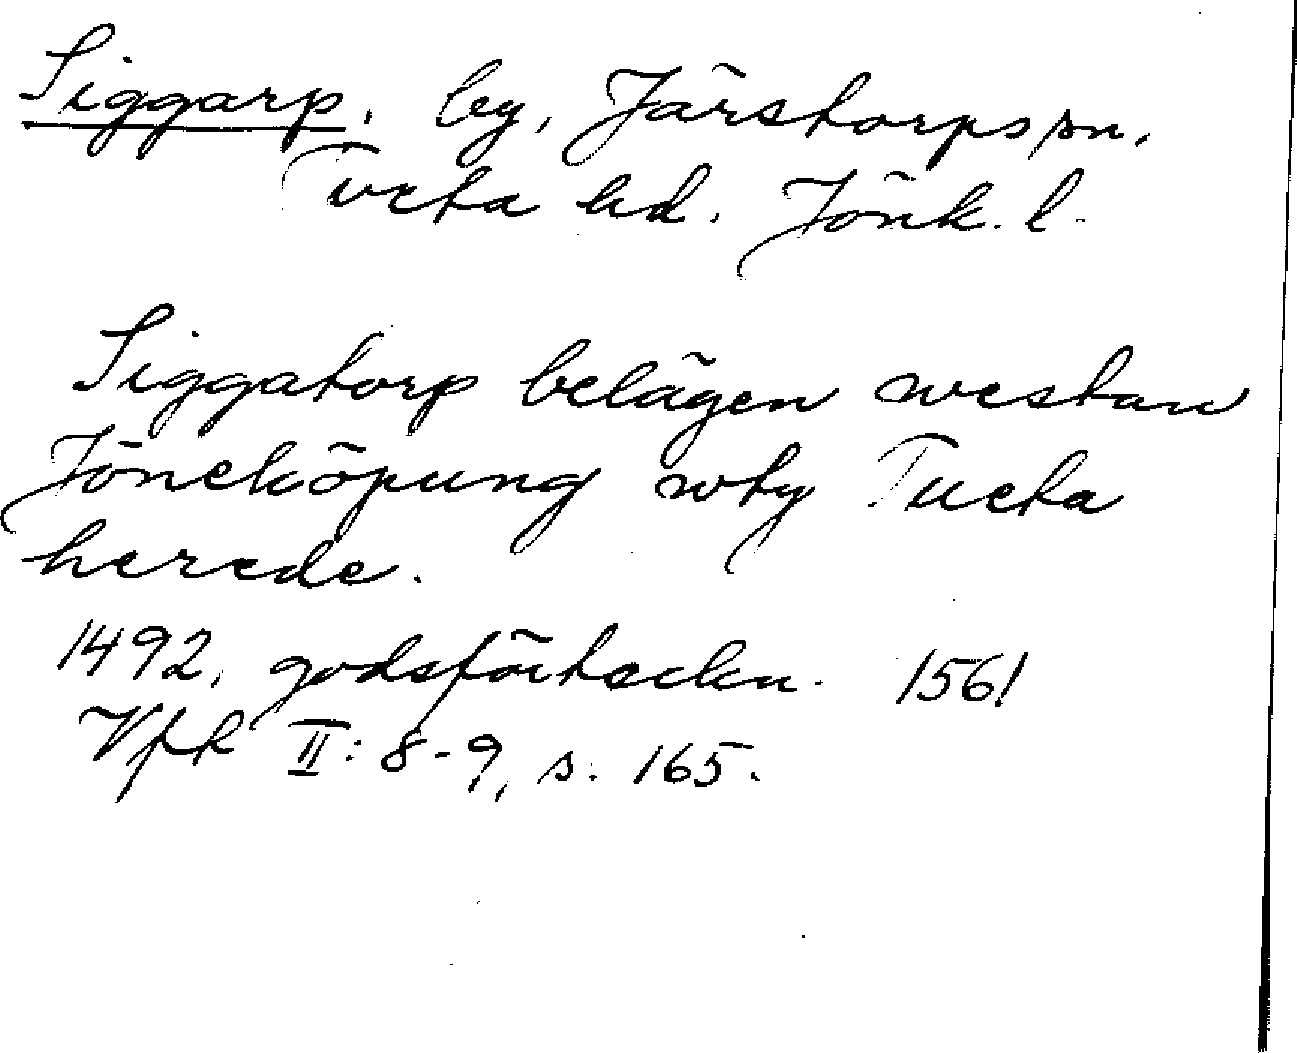 Siggarp. by, Järstorps sn.
Tveta hd. Jönk. l.
Siggatorp belägen westan
Jöneköpung wty Tueta
herede.
1492, godsförteckn. 1561
Vfk II: 8-9, s. 165.